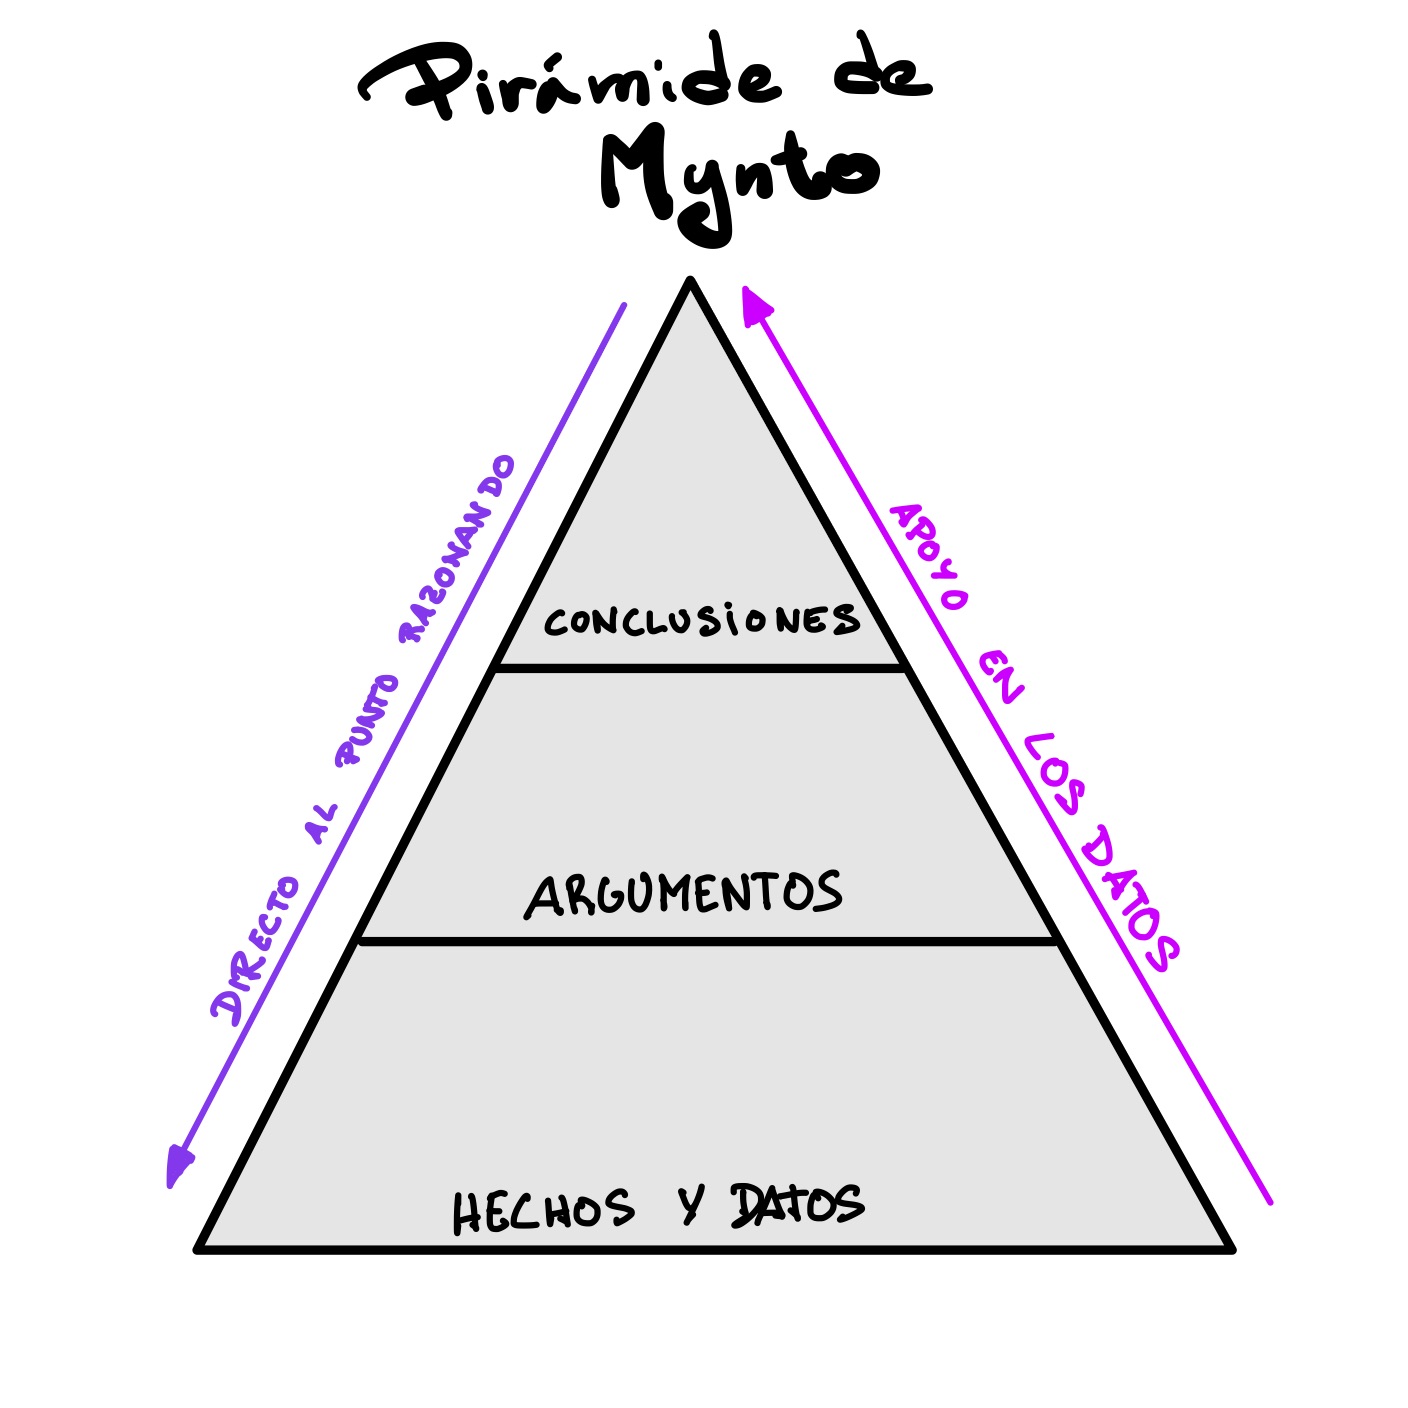 Pirámide de
Mynto
DIRECTO AL PUNTO RAZONANDO
APOYO EN LOS DATOS
CONCLUSIONES
ARGUMENTOS
HECHOS Y DATOS